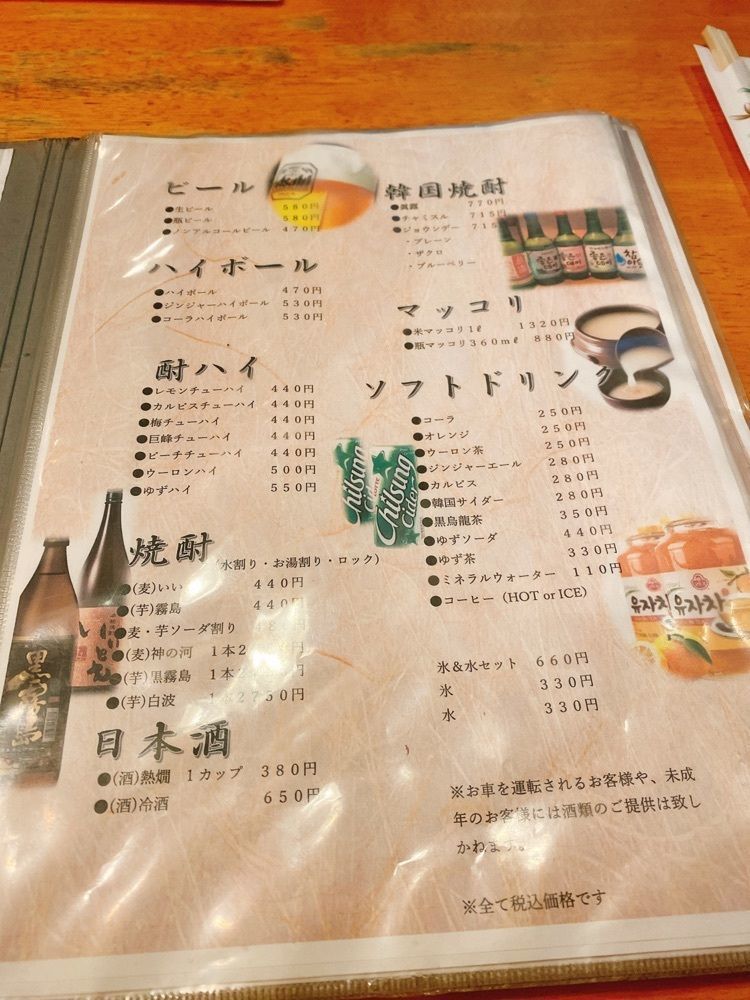 ビール
●生ビール 580円
●瓶ビール 580円
●ノンアルコールビール 470円
ハイボール
●ハイボール 470円
●ジンジャーハイボール 530円
●コーラハイボール 530円
酎ハイ
●レモンチューハイ 440円
●カルピスチューハイ 440円
●梅チューハイ 440円
●巨峰チューハイ 440円
●ピーチチューハイ 440円
●ウーロンハイ 500円
●ゆずハイ 550円
焼酎 (水割り・お湯割り・ロック)
●(麦)いいちこ 440円
●(芋)霧島 440円
●麦・芋ソーダ割り
●(麦)神の河 1本
●(芋)黒霧島 1本
●(芋)白波 1本2750円
日本酒
●(酒)熱燗 1カップ 380円
●(酒)冷酒 650円
韓国焼酎
●眞露 770円
●チャミスル 715円
●ジョウンデー 715円
・プレーン
・ザクロ
・ブルーベリー
マッコリ
●米マッコリ1ℓ 1320円
●瓶マッコリ360mℓ 880円
ソフトドリンク
●コーラ 250円
●オレンジ 250円
●ウーロン茶 250円
●ジンジャーエール 280円
●カルピス 280円
●韓国サイダー 280円
●黒烏龍茶 350円
●ゆずソーダ 440円
●ゆず茶 330円
●ミネラルウォーター 110円
●コーヒー (HOT or ICE)
氷&水セット 660円
氷 330円
水 330円
※お車を運転されるお客様や、未成
年のお客様には酒類のご提供は致し
かねます。
※全て税込価格です
Chilsung
Cider
Chilsung
Cider
유자차
유자차
黒霧島